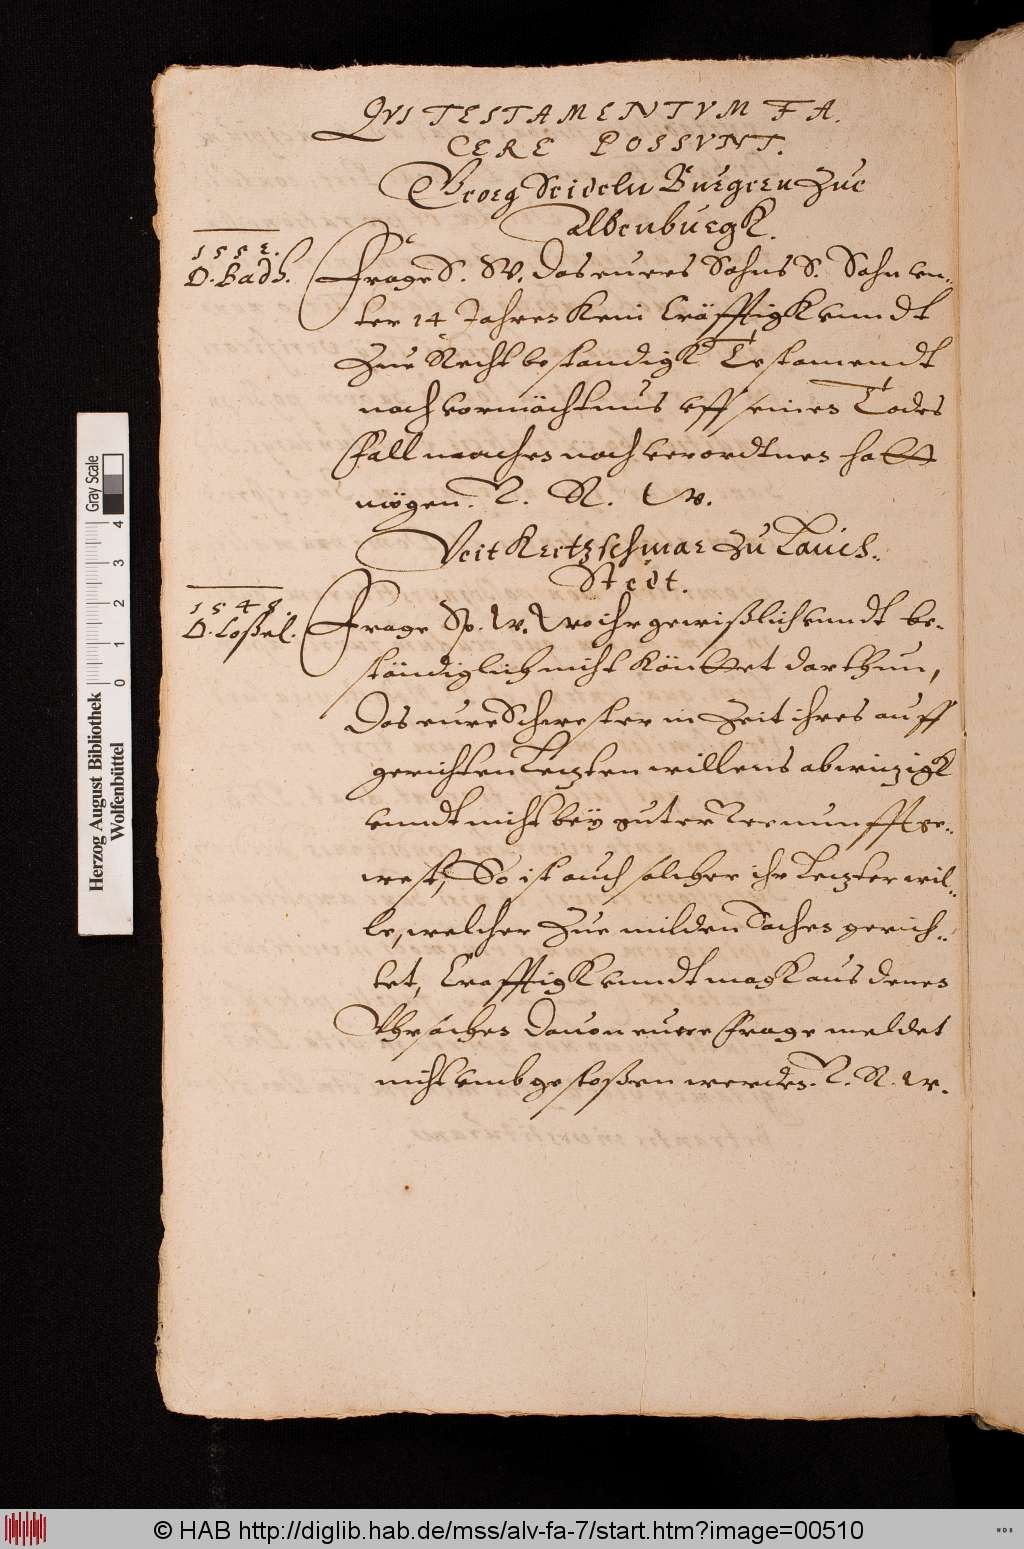 QVI TESTAMENTVM FA.
CERE POSSVNT.
Georg Seideln Burgern zue
Aldenburgk.
1552.
D. Badh.
Frage S. W. Das eures Sohns S. Sohn vn..
ter 14 Jahren kein Cräfftigk vnndt
Zue Recht bestandigk Testamendt
noch vormächtnus vff seinen Todes
Fall machen noch verordtnen hatt
mögen. V. R. W.
Veit Kretzschmar zu Lauch..
Stedt.
1548.
D. Loßel.
Frage Sp. W. Wo ihr gewißlich vnndt be-
ständiglich nicht köntet darthun,
Das eure Schwester in Zeit ihres auff
gerichten Letzten willens abwitzigk
vnndt nicht bey guter Vernunfft ge..
west, So ist auch solcher ihr Letzter wil..
le, welcher Zue milden Sachen gerich..
tet, Crafftigk vnndt magk aus denen
Vhrsachen Dauon eure Frage meldet
nicht vmbgestoßen werden. V. R. W.
Herzog August Bibliothek
Wolfenbüttel
0 1 2 3 4
Gray Scale
© HAB http://diglib.hab.de/mss/alv-fa-7/start.htm?image=00510